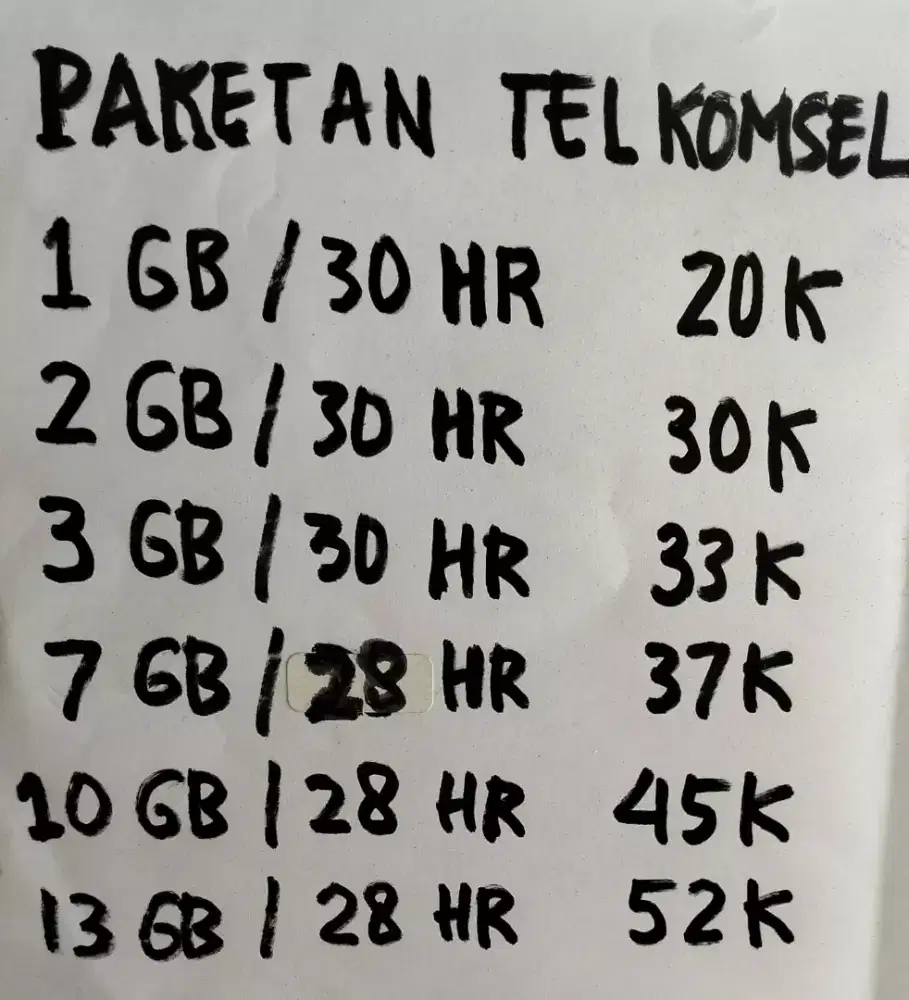 PAKETAN TELKOMSEL
1 GB / 30 HR 20K
2 GB / 30 HR 30K
3 GB / 30 HR 33K
7 GB / 28 HR 37K
10 GB / 28 HR 45K
13 GB / 28 HR 52K